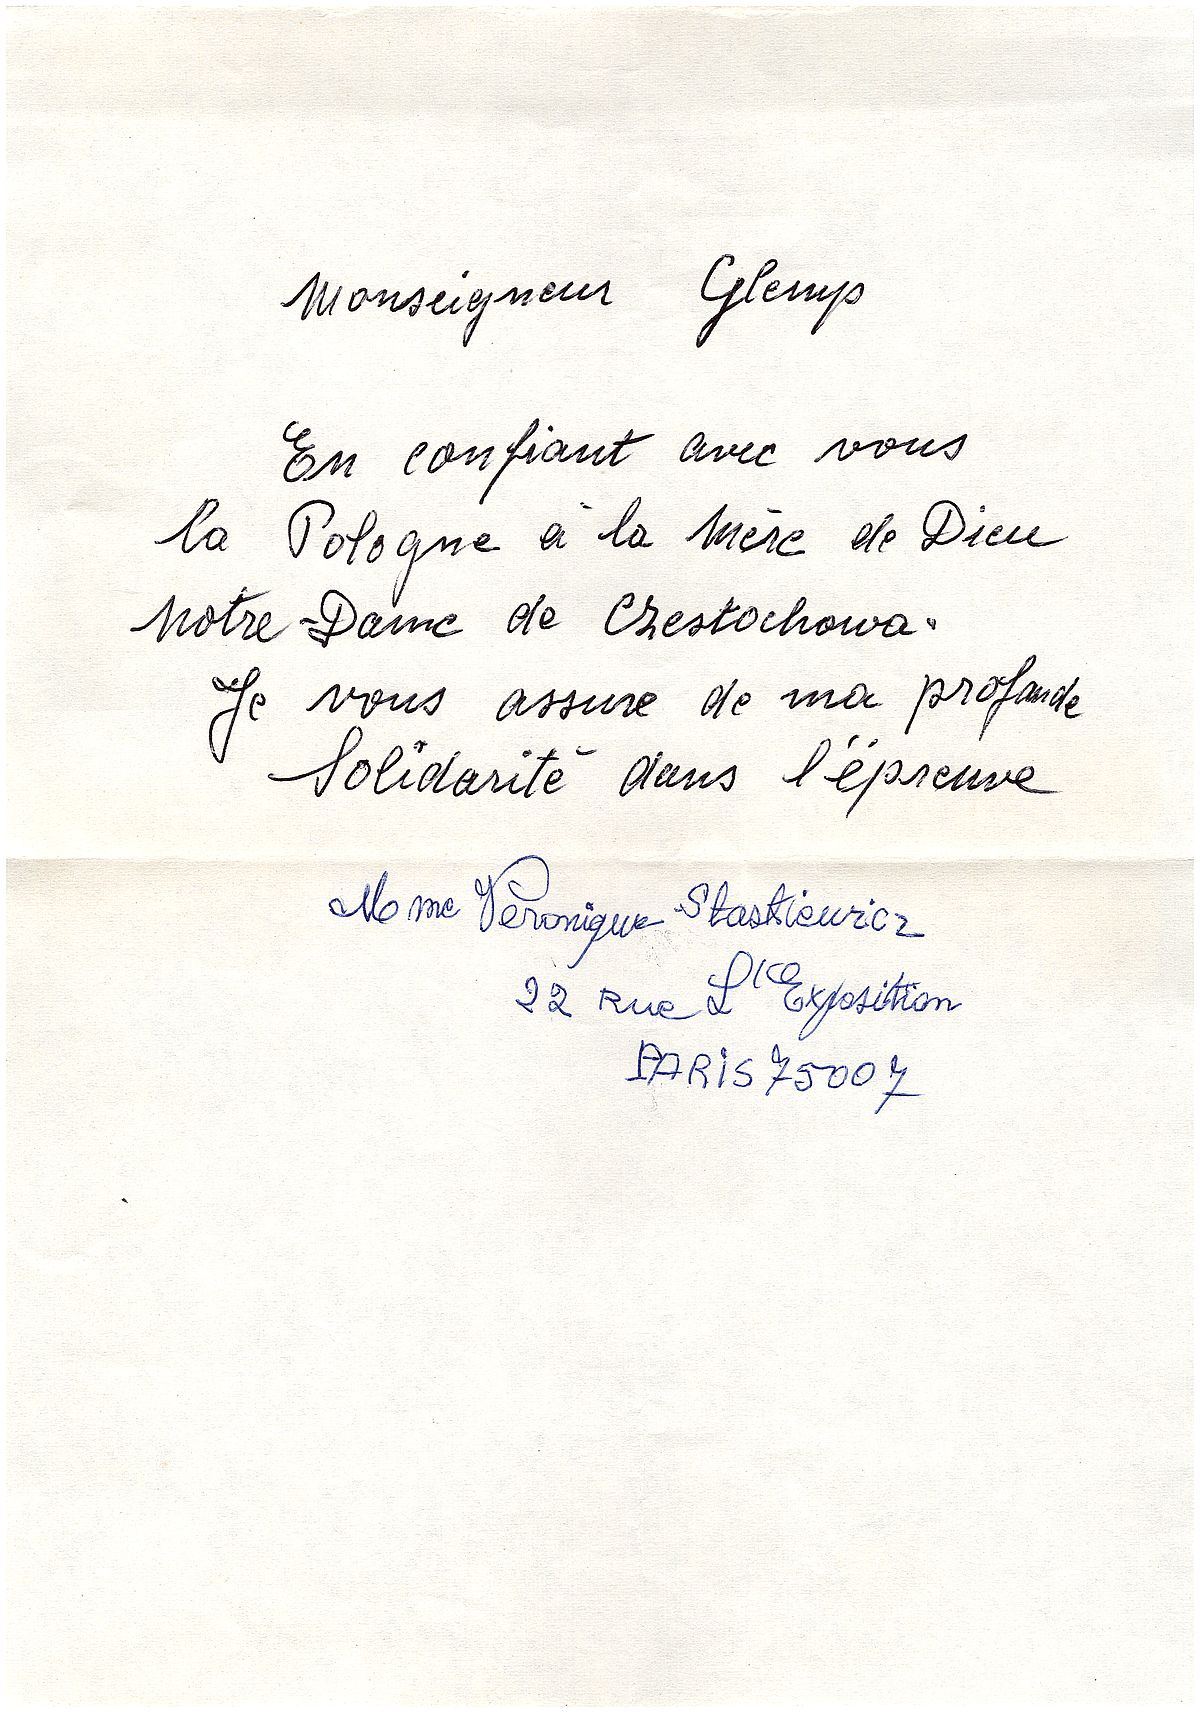 Monseigneur Glemp
En confiant avec vous
la Pologne à la Mère de Dieu
Notre-Dame de Czestochowa.
Je vous assure de ma profonde
Solidarité dans l'épreuve
Mme Véronique Stastiewicz
22 Rue L'Exposition
PARIS 75007